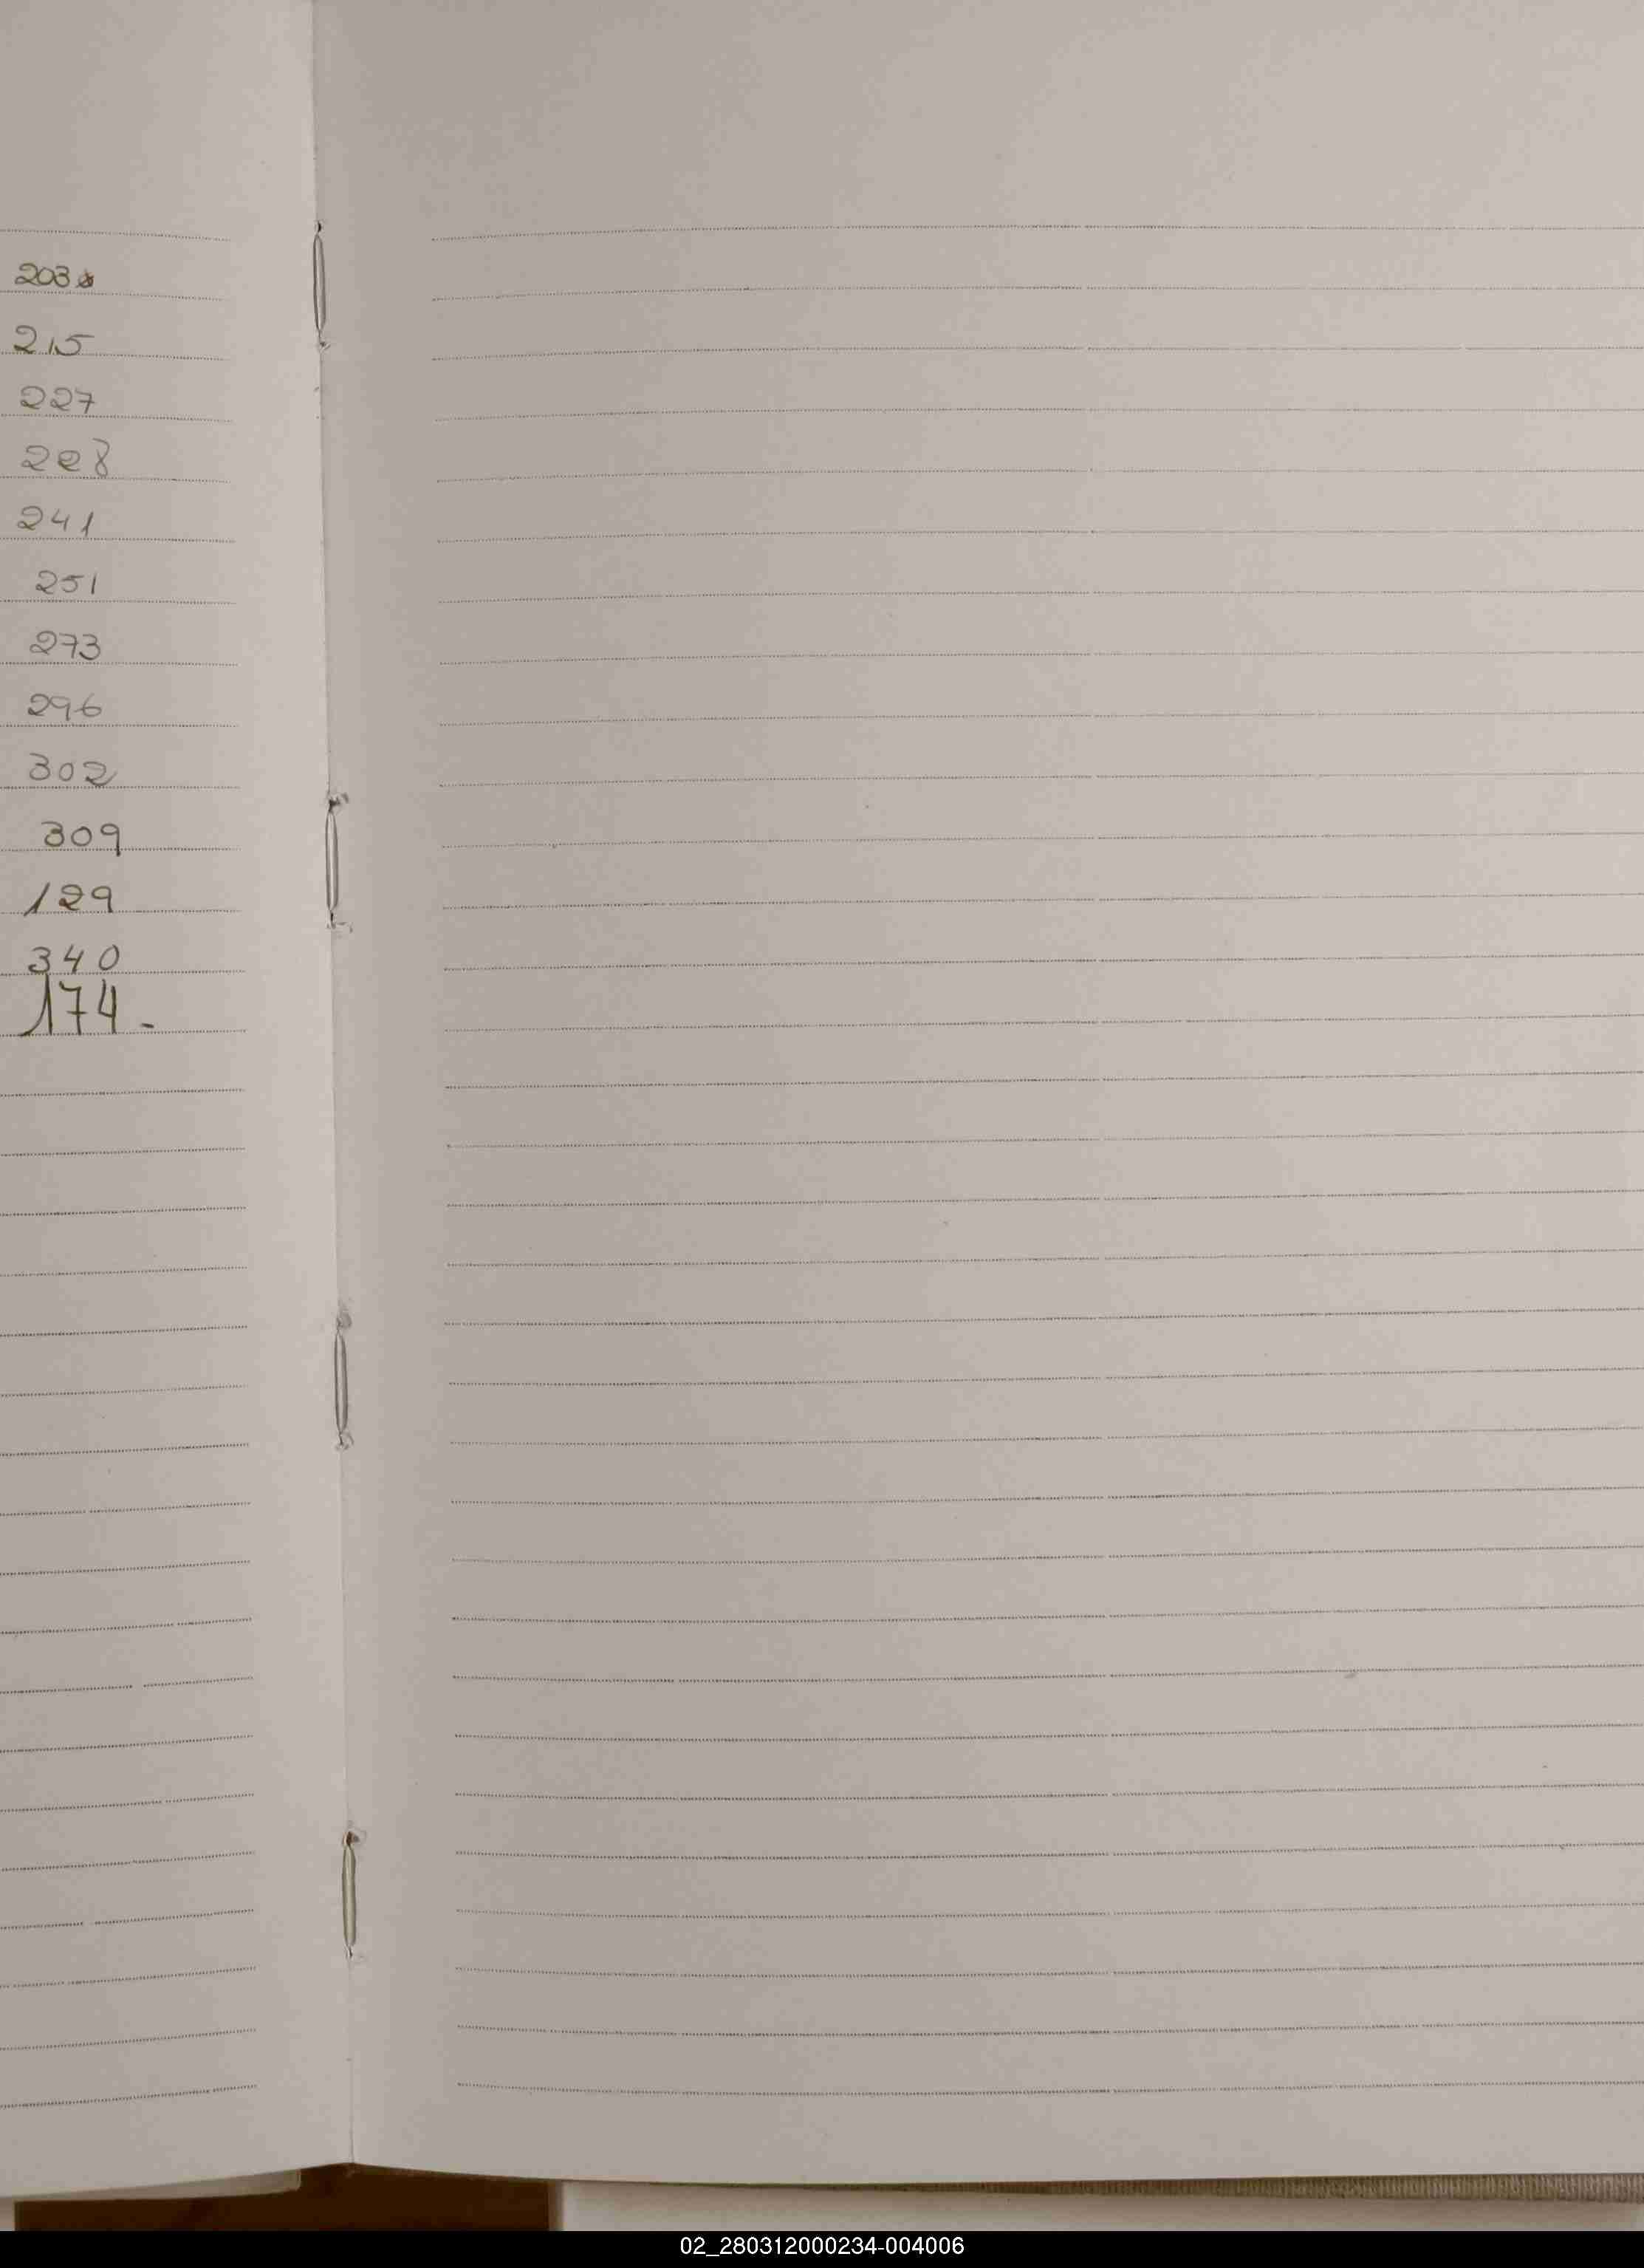 203
215
227
228
241
251
273
296
302
309
129
340
174-
02_280312000234-004006